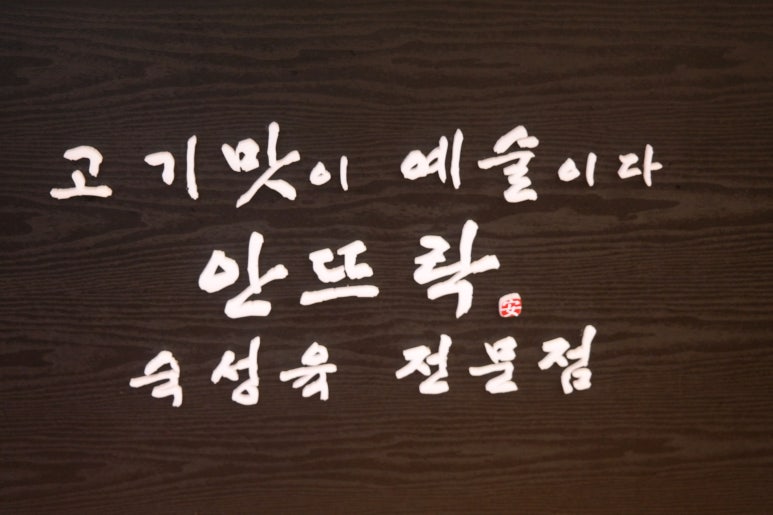 고기맛이 예술이다
안뜨락
安
숙성육 전문점